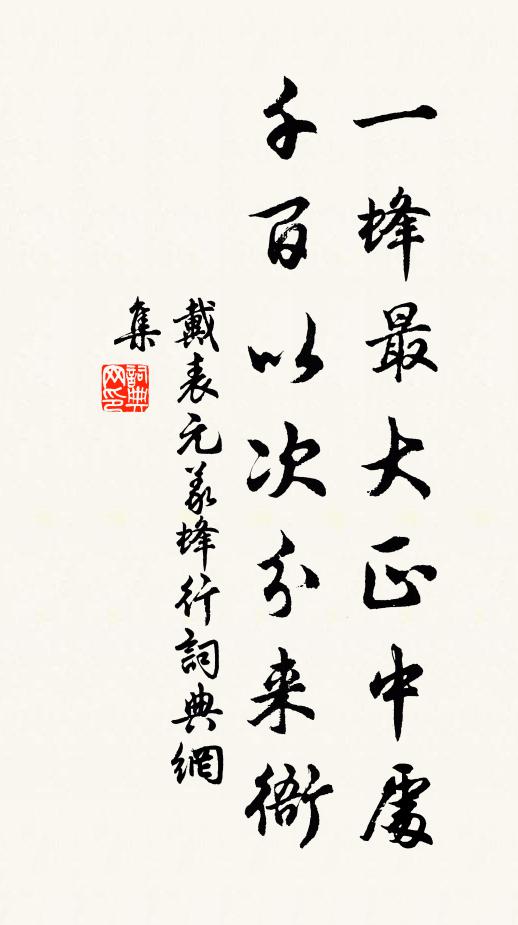 一蜂最大正中處
千百以次分來衙
戴表元義蜂行詞典網
集
詞典網印